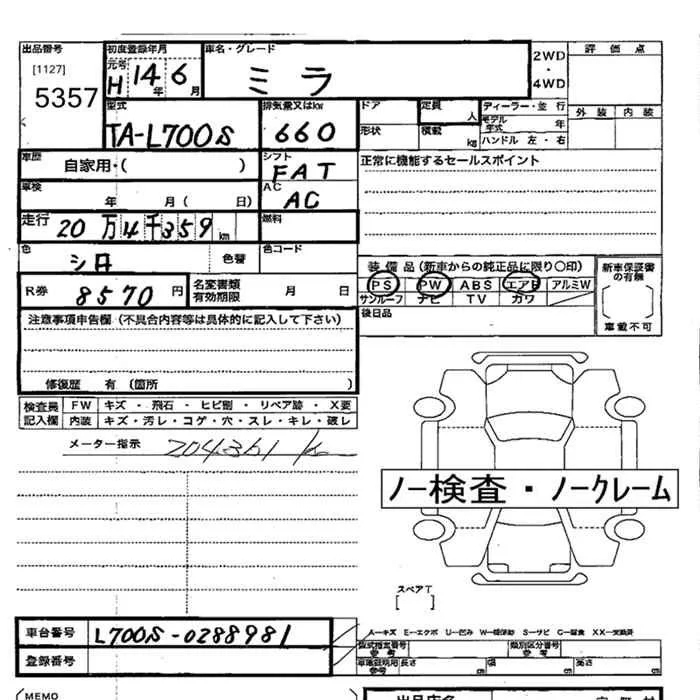 出品番号
[1127]
5357
初度登録年月
元号
H 14年 6月
車名・グレード
ミラ
2WD
・
4WD
評価点
外装 内装
型式
TA-L700S
排気量又はkw
660
ドア
形状
定員 人
積載 kg
ディーラー・並行
モデル年式 年
ハンドル 左・右
車歴
自家用・( )
シフト
FAT
正常に機能するセールスポイント
車検
年 月( 日)
AC
AC
走行 20万4千359km
燃料
色
シロ
色替
色コード
装備品(新車からの純正品に限り〇印)
PS PW ABS エアB アルミW
サンルーフ ナビ TV カワ
新車保証書の有無
車載不可
R券 8570円
名変書類有効期限 月 日
後日品
注意事項申告欄(不具合内容等は具体的に記入して下さい)
修復歴 有(箇所 )
検査員記入欄
FW キズ・飛石・ヒビ割・リペア跡・X要
内装 キズ・汚レ・コゲ・穴・スレ・キレ・破レ
メーター指示 204361 km
ノー検査・ノークレーム
スペアT
[ ]
車台番号 L700S-0288981
登録番号
A―キズ E―エクボ U―凹み W―補修跡 S―サビ C―腐食 XX―交換済
型式指定番号
参考
類別区分番号
参考
車庫証明用
参考
長さ cm 幅 cm 高さ cm
MEMO
出品店名